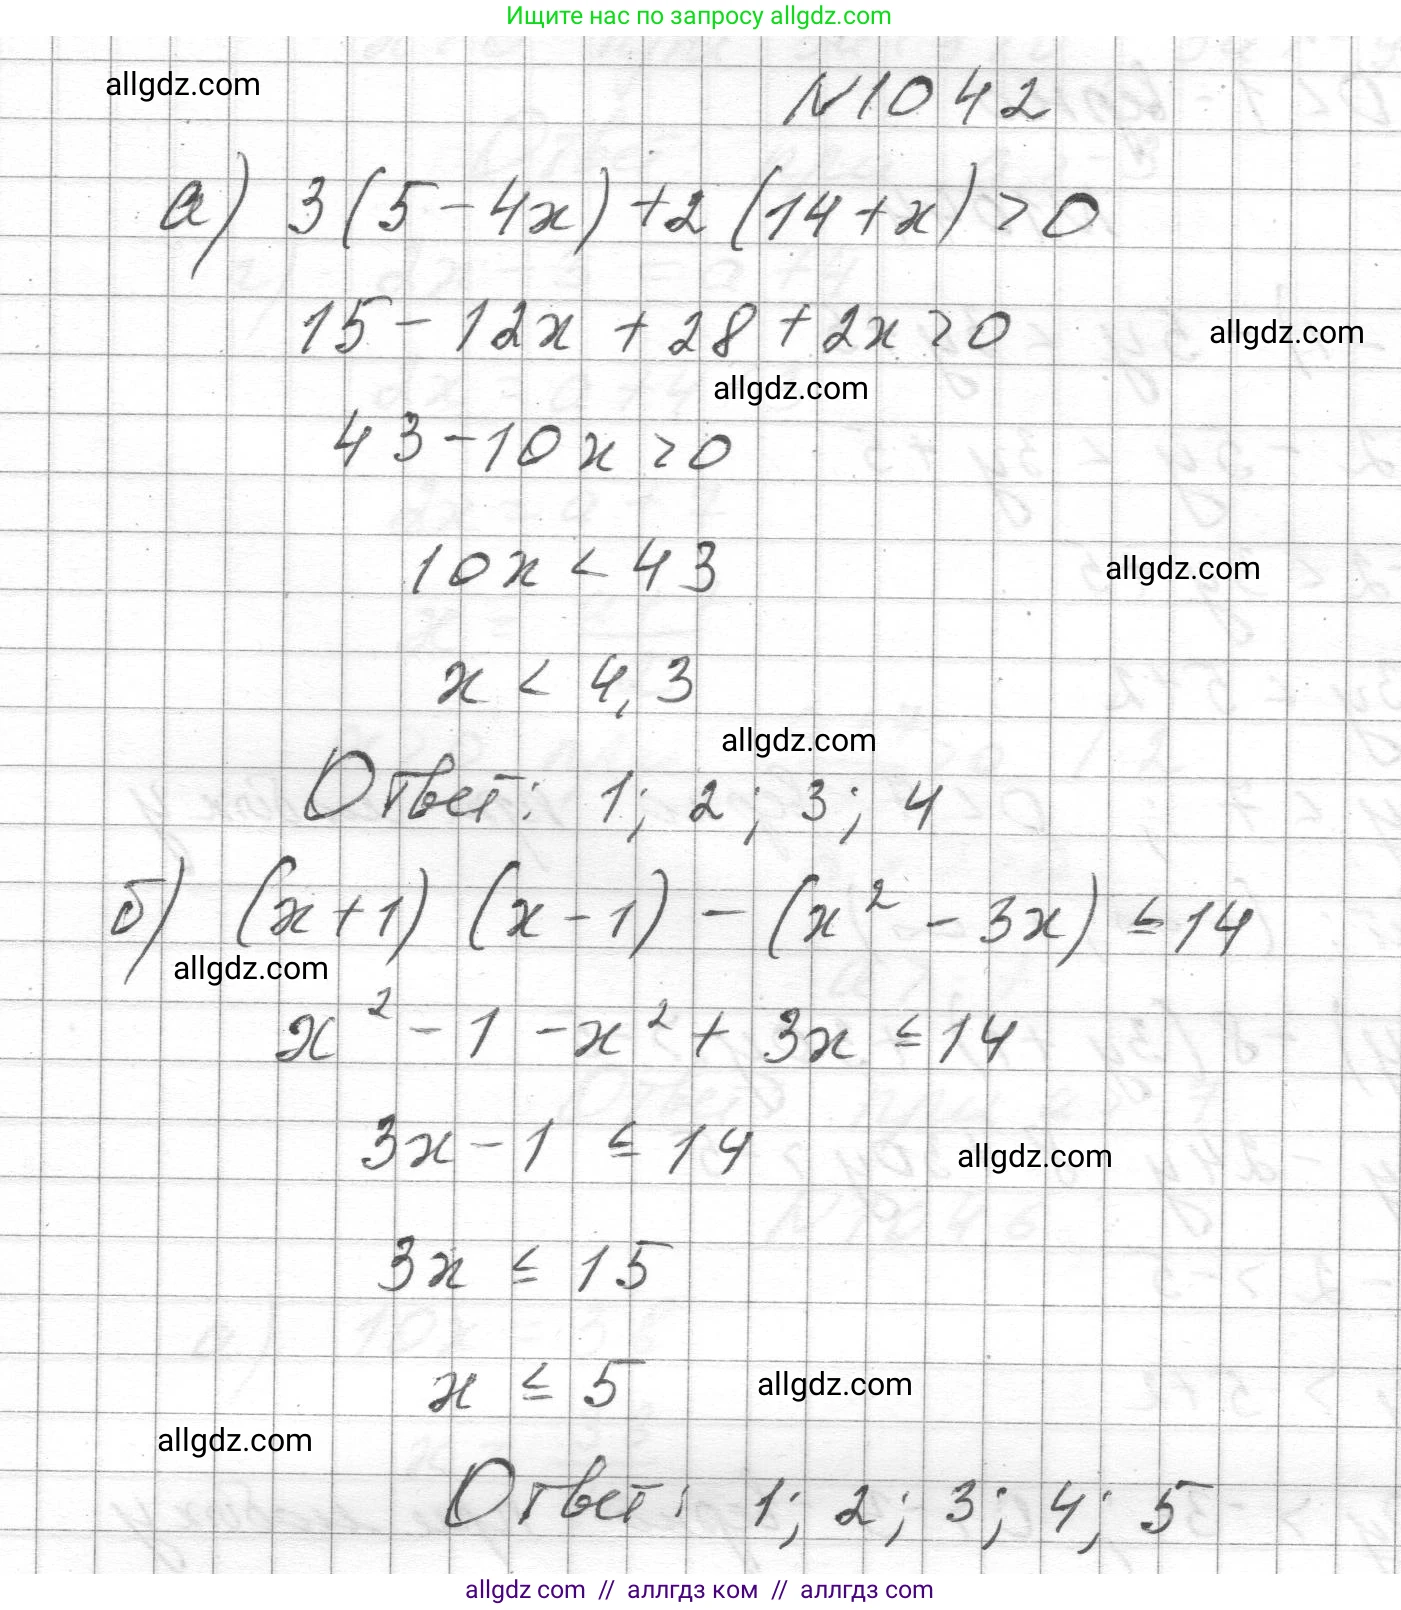 Ищите нас по запросу allgdz.com
allgdz.com
N1042
а) 3(5-4x)+2(14+x)>0
15-12x+28+2x>0
allgdz.com
allgdz.com
43-10x>0
10x<43
allgdz.com
x<4,3
allgdz.com
Ответ: 1; 2; 3; 4
б) (x+1)(x-1)-(x²-3x)≤14
allgdz.com
x²-1-x²+3x≤14
3x-1≤14
allgdz.com
3x≤15
x≤5
allgdz.com
allgdz.com
Ответ: 1; 2; 3; 4; 5
allgdz com // аллгдз ком // аллгдз com